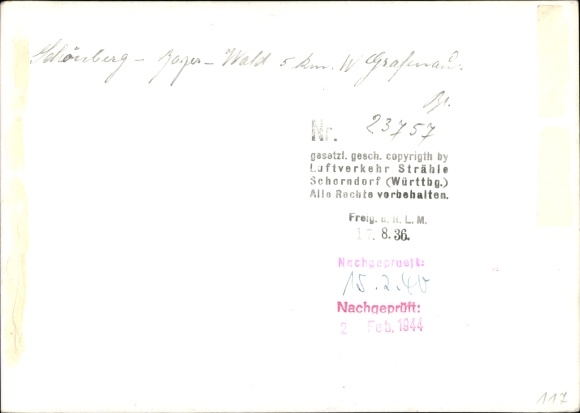 Schönberg - Bayer - Wald 5 km. W Grafenau.
Br.
Nr. 23757
gesetzl. gesch. copyrigth by
Luftverkehr Strähle
Schorndorf (Württbg.)
Alle Rechte vorbehalten.
Freig. d. R. L. M.
17. 8. 36.
Nachgeprüft:
15.2.40
Nachgeprüft:
2 Feb. 1944
117